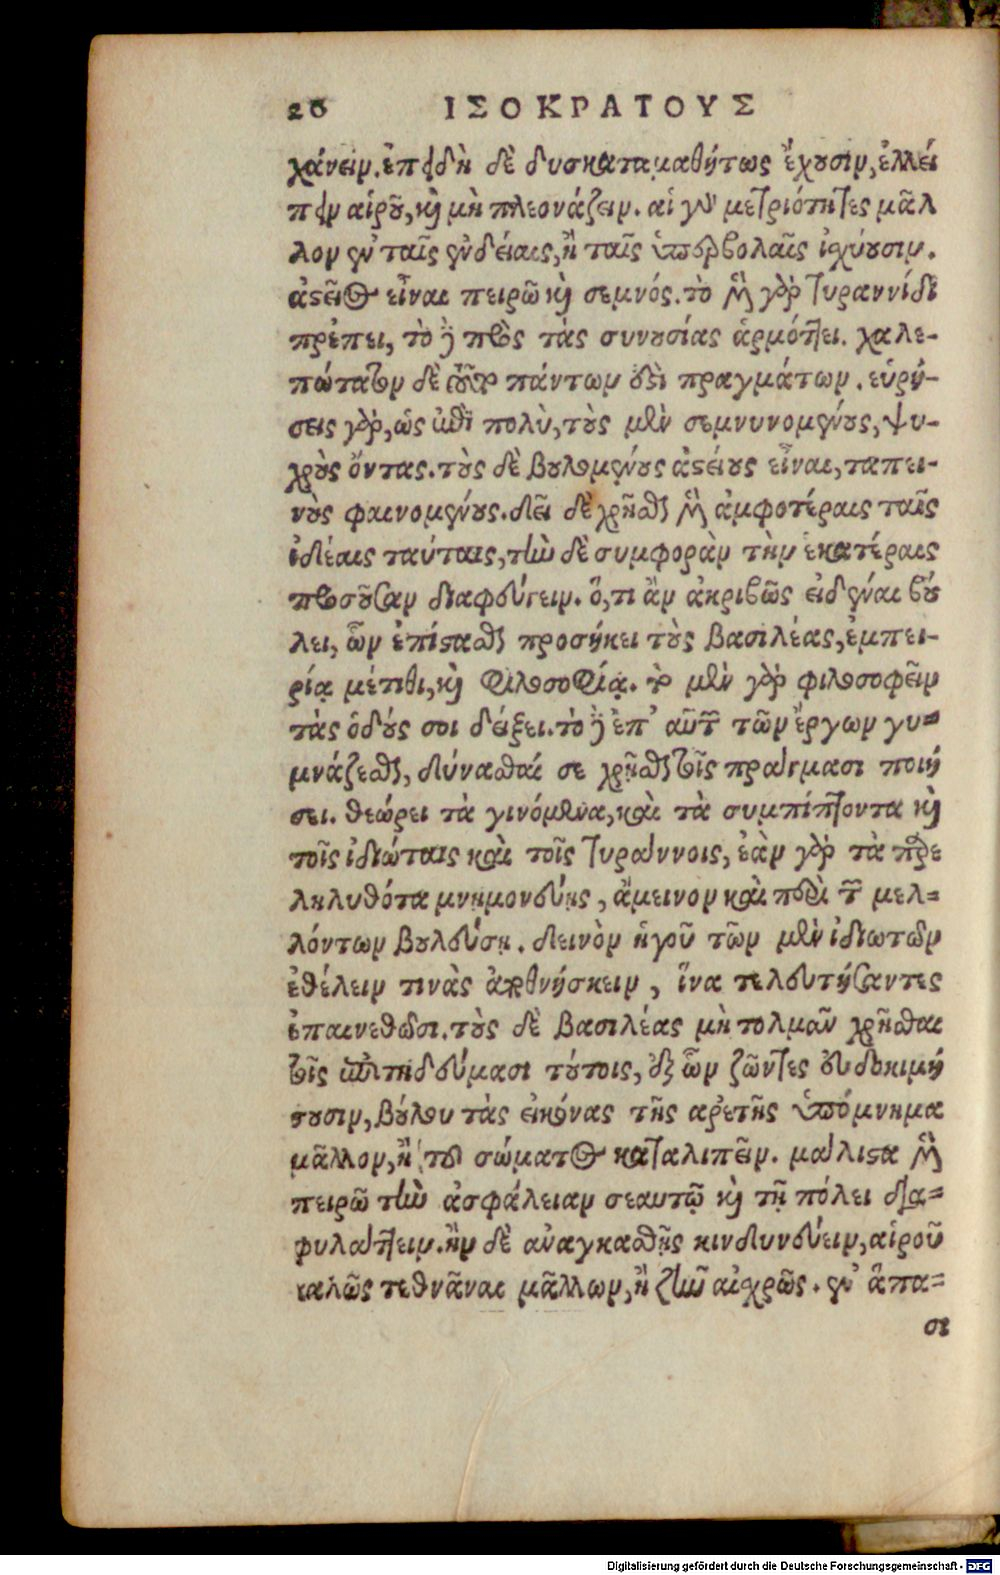 26 ΙΣΟΚΡΑΤΟΥΣ
χάνειν. ἐπειδὴ δὲ δυσκαταμαθήτως ἔχουσιν, ἐλλεί
πειν αἱροῦ, καὶ μὴ πλεονάζειν. αἱ γὰρ μετριότητες μᾶλ
λον ἐν ταῖς ἐνδείαις, ἢ ταῖς ὑπερβολαῖς ἰχύουσιν.
ἀστεῖος εἶναι πειρῶ καὶ σεμνός. τὸ μὲν γὰρ τυραννίδι
πρέπει, τὸ δὲ πρὸς τὰς συνουσίας ἁρμόττει. χαλε-
πώτατον δὲ τοῦτο πάντων ἐστὶ πραγμάτων. εὑρή-
σεις γὰρ, ὡς ἐπὶ τὸ πολὺ, τοὺς μὲν σεμνυνομένους, ψυ-
χροὺς ὄντας. τοὺς δὲ βουλομένους ἀστείους εἶναι, ταπει-
νοὺς φαινομένους. δεῖ δὲ χρῆσθαι μὲν ἀμφοτέραις ταῖς
ἰδέαις ταύταις, τὴν δὲ συμφορὰν τὴν ἑκατέραις
προσοῦσαν διαφεύγειν. ὅ, τι ἂν ἀκριβῶς εἰδέναι βού
λει, ὧν ἐπίστασθαι προσήκει τοὺς βασιλέας, ἐμπει-
ρίᾳ μέτιθι, καὶ φιλοσοφίᾳ. τὸ μὲν γὰρ φιλοσοφεῖν
τὰς ὁδούς σοι δείξει. τὸ δὲ ἐπ' αὐτῶν τῶν ἔργων γυ-
μνάζεσθαι, δύνασθαί σε χρῆσθαι τοῖς πράγμασι ποιή
σει. θεώρει τὰ γινόμενα, καὶ τὰ συμπίπτοντα καὶ
τοῖς ἰδιώταις καὶ τοῖς τυράννοις, ἐὰν γὰρ τὰ παρε
ληλυθότα μνημονεύῃς, ἄμεινον καὶ περὶ τῶν μελ-
λόντων βουλεύσῃ. δεινὸν ἡγοῦ τῶν μὲν ἰδιωτῶν
ἐθέλειν τινὰς ἀποθνήσκειν, ἵνα τελευτήσαντες
ἐπαινεθῶσι. τοὺς δὲ βασιλέας μὴ τολμᾶν χρῆσθαι
τοῖς ἐπιτηδεύμασι τούτοις, ἐξ ὧν ζῶντες εὐδοκιμή
σουσιν, βούλου τὰς εἰκόνας τῆς ἀρετῆς ὑπόμνημα
μᾶλλον, ἢ τοῦ σώματος καταλιπεῖν. μάλιστα μὲν
πειρῶ τὴν ἀσφάλειαν σεαυτῷ καὶ τῇ πόλει δια-
φυλάττειν. ἢν δὲ ἀναγκασθῇς κινδυνεύειν, αἱροῦ
καλῶς τεθνᾶναι μᾶλλων, ἢ ζῆν αἰχρῶς. ἐν ἅπα-
σι
Digitalisierung gefördert durch die Deutsche Forschungsgemeinschaft - DFG